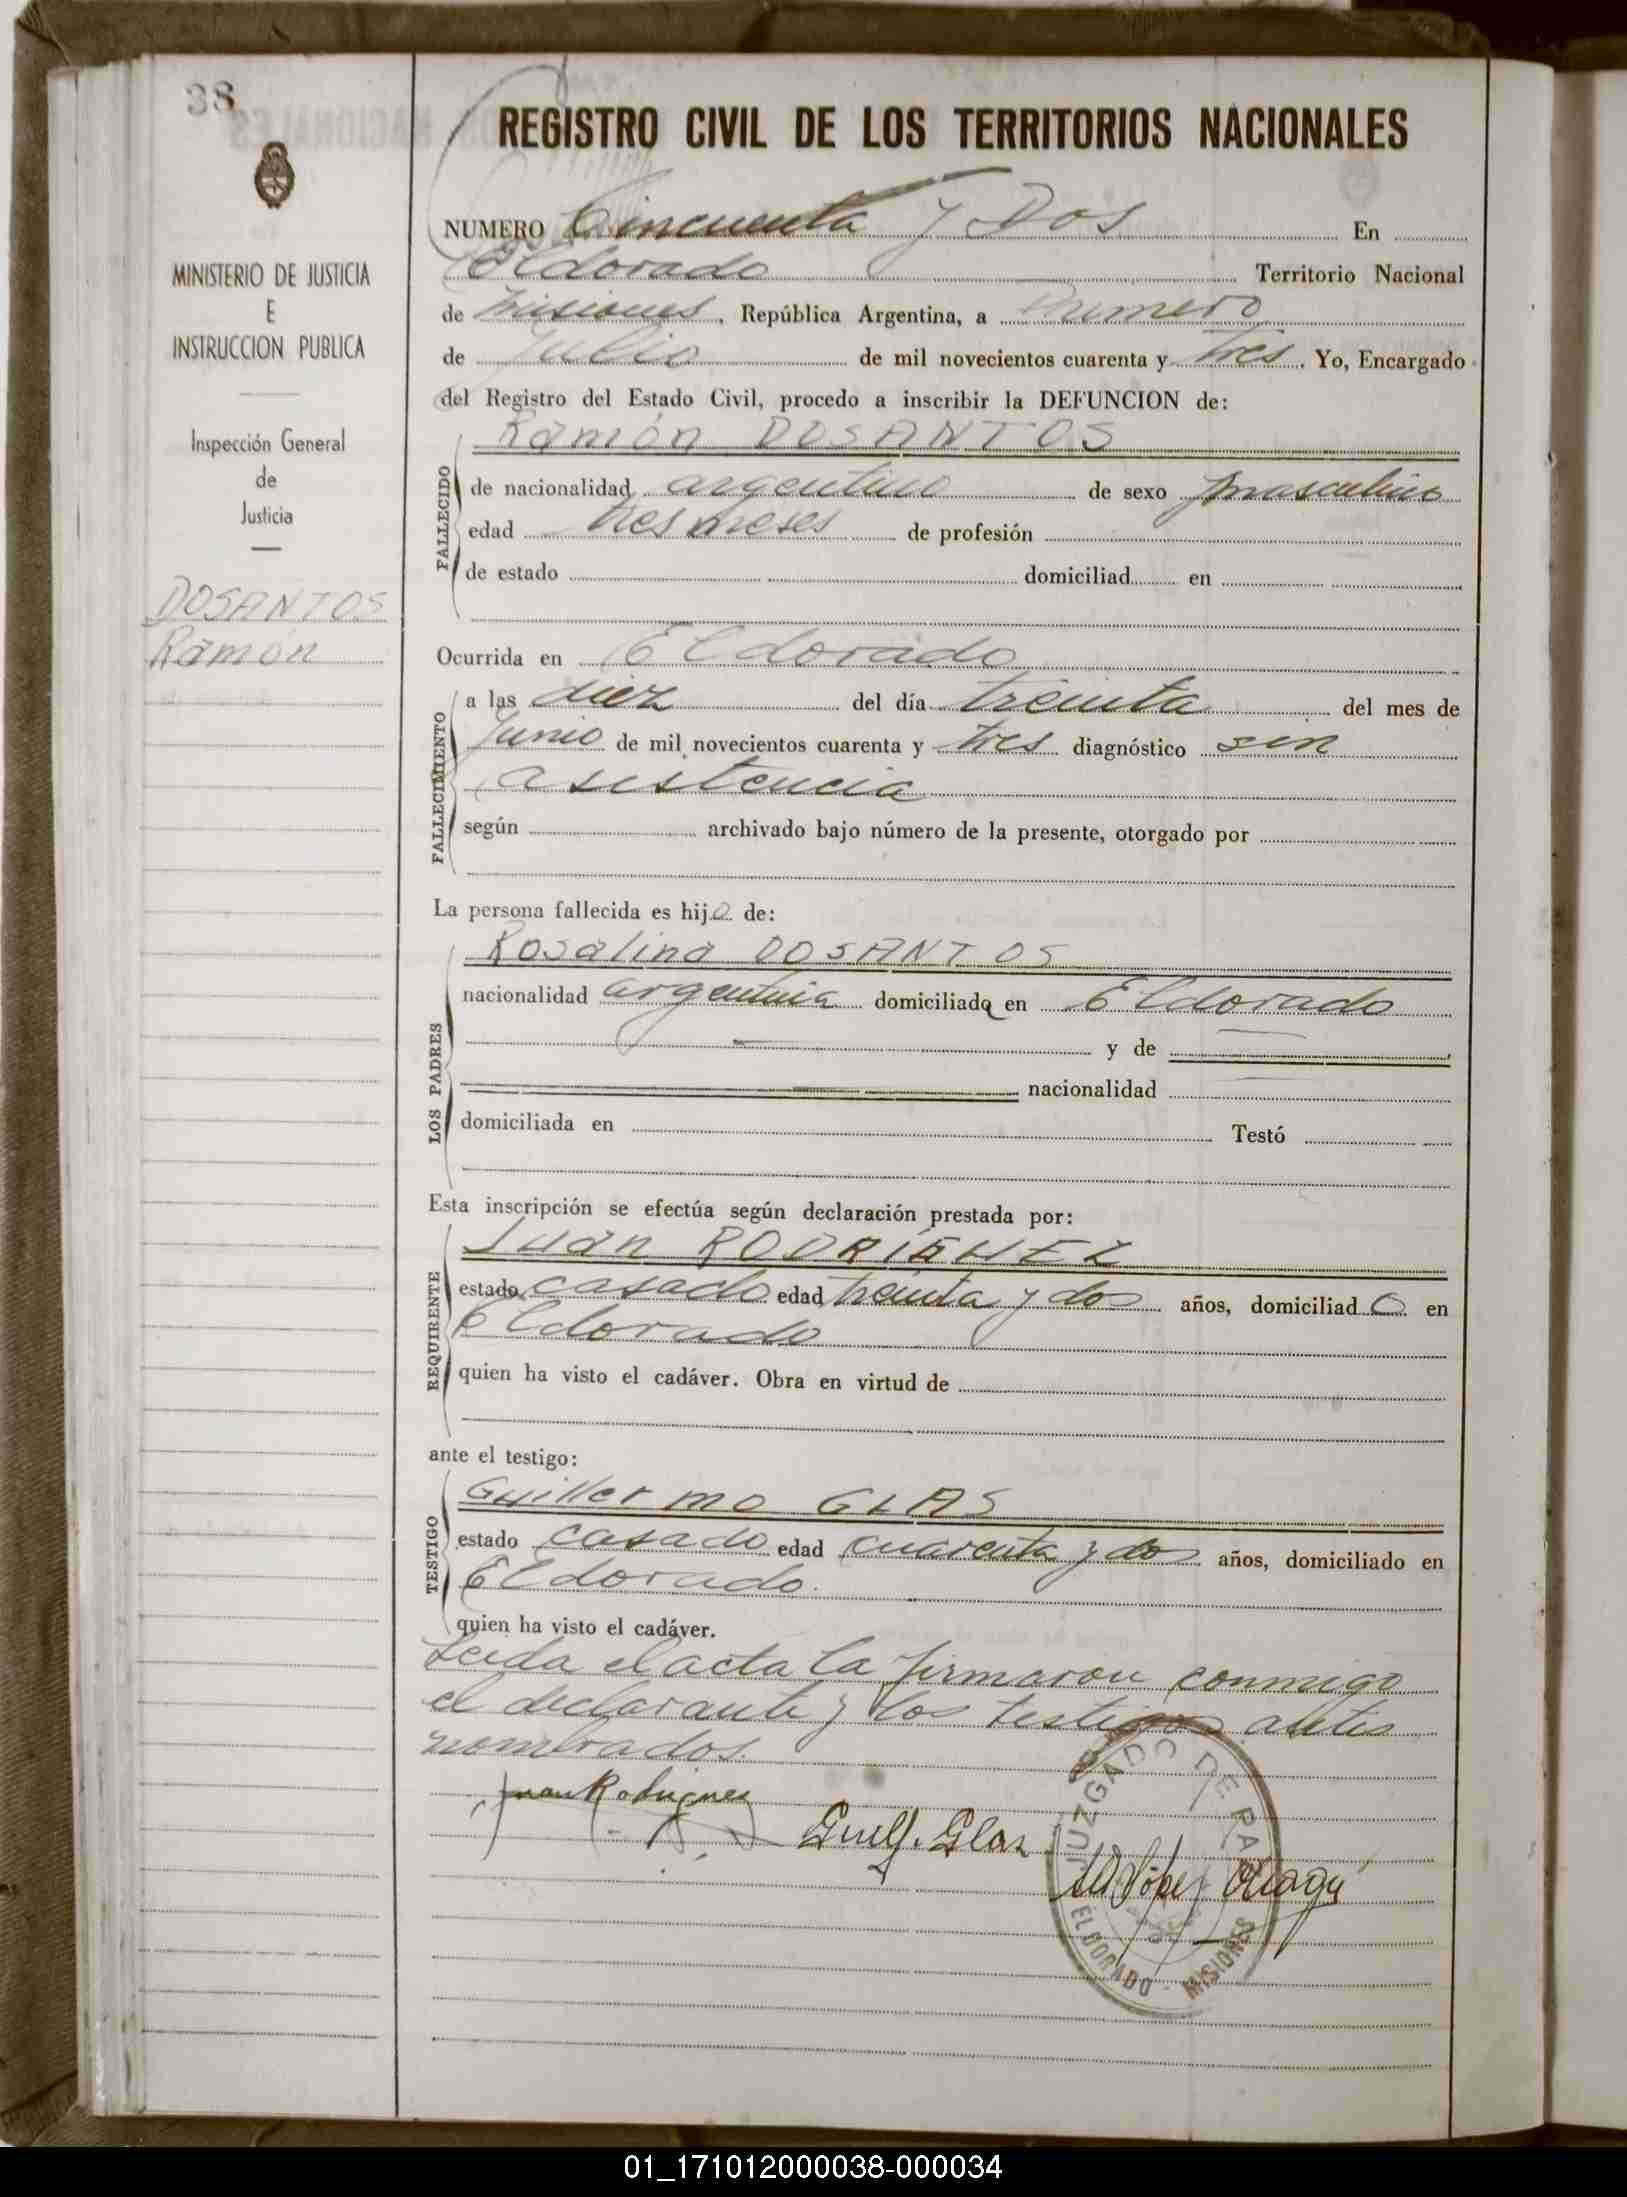 38
REGISTRO CIVIL DE LOS TERRITORIOS NACIONALES
MINISTERIO DE JUSTICIA
E
INSTRUCCION PUBLICA
Inspección General
de
Justicia
DOSANTOS
Ramón
NUMERO Cincuenta y Dos En
Eldorado Territorio Nacional
de Misiones, República Argentina, a Primero
de Julio de mil novecientos cuarenta y tres. Yo, Encargado
del Registro del Estado Civil, procedo a inscribir la DEFUNCION de:
Ramón DOSANTOS
FALLECIDO
de nacionalidad argentino de sexo masculino
edad tres meses de profesión
de estado domiciliad en
Ocurrida en Eldorado
FALLECIMIENTO
a las diez del día treinta del mes de
Junio de mil novecientos cuarenta y tres diagnóstico sin
asistencia
según archivado bajo número de la presente, otorgado por
La persona fallecida es hijo de:
LOS PADRES
Rosalina DOSANTOS
nacionalidad argentina domiciliada en Eldorado
y de
nacionalidad
domiciliada en Testó
Esta inscripción se efectúa según declaración prestada por:
REQUIRENTE
Juan RODRÍGUEZ
estado casado edad treinta y dos años, domiciliado en
Eldorado
quien ha visto el cadáver. Obra en virtud de
ante el testigo:
TESTIGO
Guillermo GLAS
estado casado edad cuarenta y dos años, domiciliado en
Eldorado.
quien ha visto el cadáver.
Leida el acta la firmaron conmigo
el declarante y los testigos antes
nombrados.
Juan Rodriguez
Guill. Glas
JUZGADO DE PAZ
ELDORADO - MISIONES
01_171012000038-000034